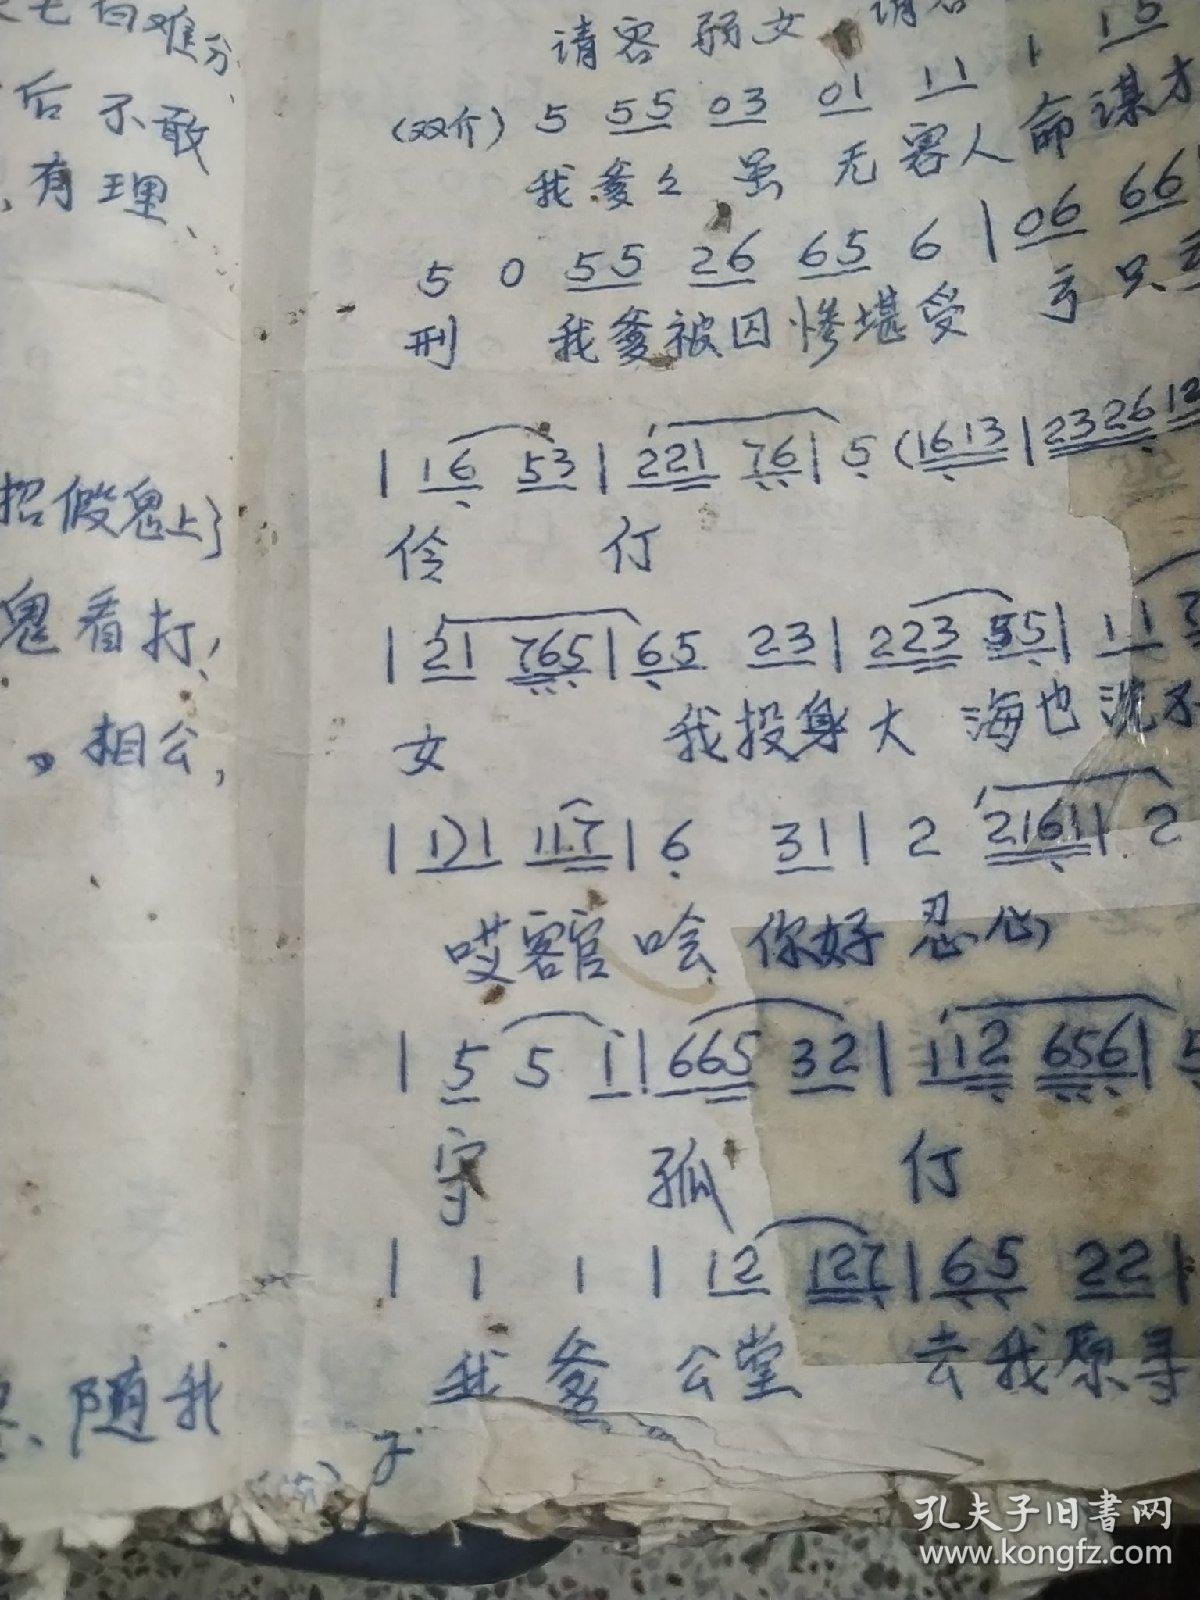 白难分
后不敢
有理、
招假鬼上}
鬼看打,
相公,
随我
请容弱女 请容
(双介) 5 55 03 01 11 1 15
我爹々虽无害人命谋才
5 0 55 26 65 6 | 06 66
刑 我爹被囚惨堪受 亏只
| 16 53 | 221 76 | 5 (1613 | 2326 12
伶 仃
| 21 765 | 65 23 | 223 55 | 11
女 我投身大海也沈不
| 121 117 | 6 31 | 2 2161 | 2
哎客官哙你好忍心
| 5 5 i | 665 32 | 112 656 | 5
守 孤 仃
| 1 1 | 12 127 | 65 22 |
我爹公堂 去我原寻
孔夫子旧书网
www.kongfz.com